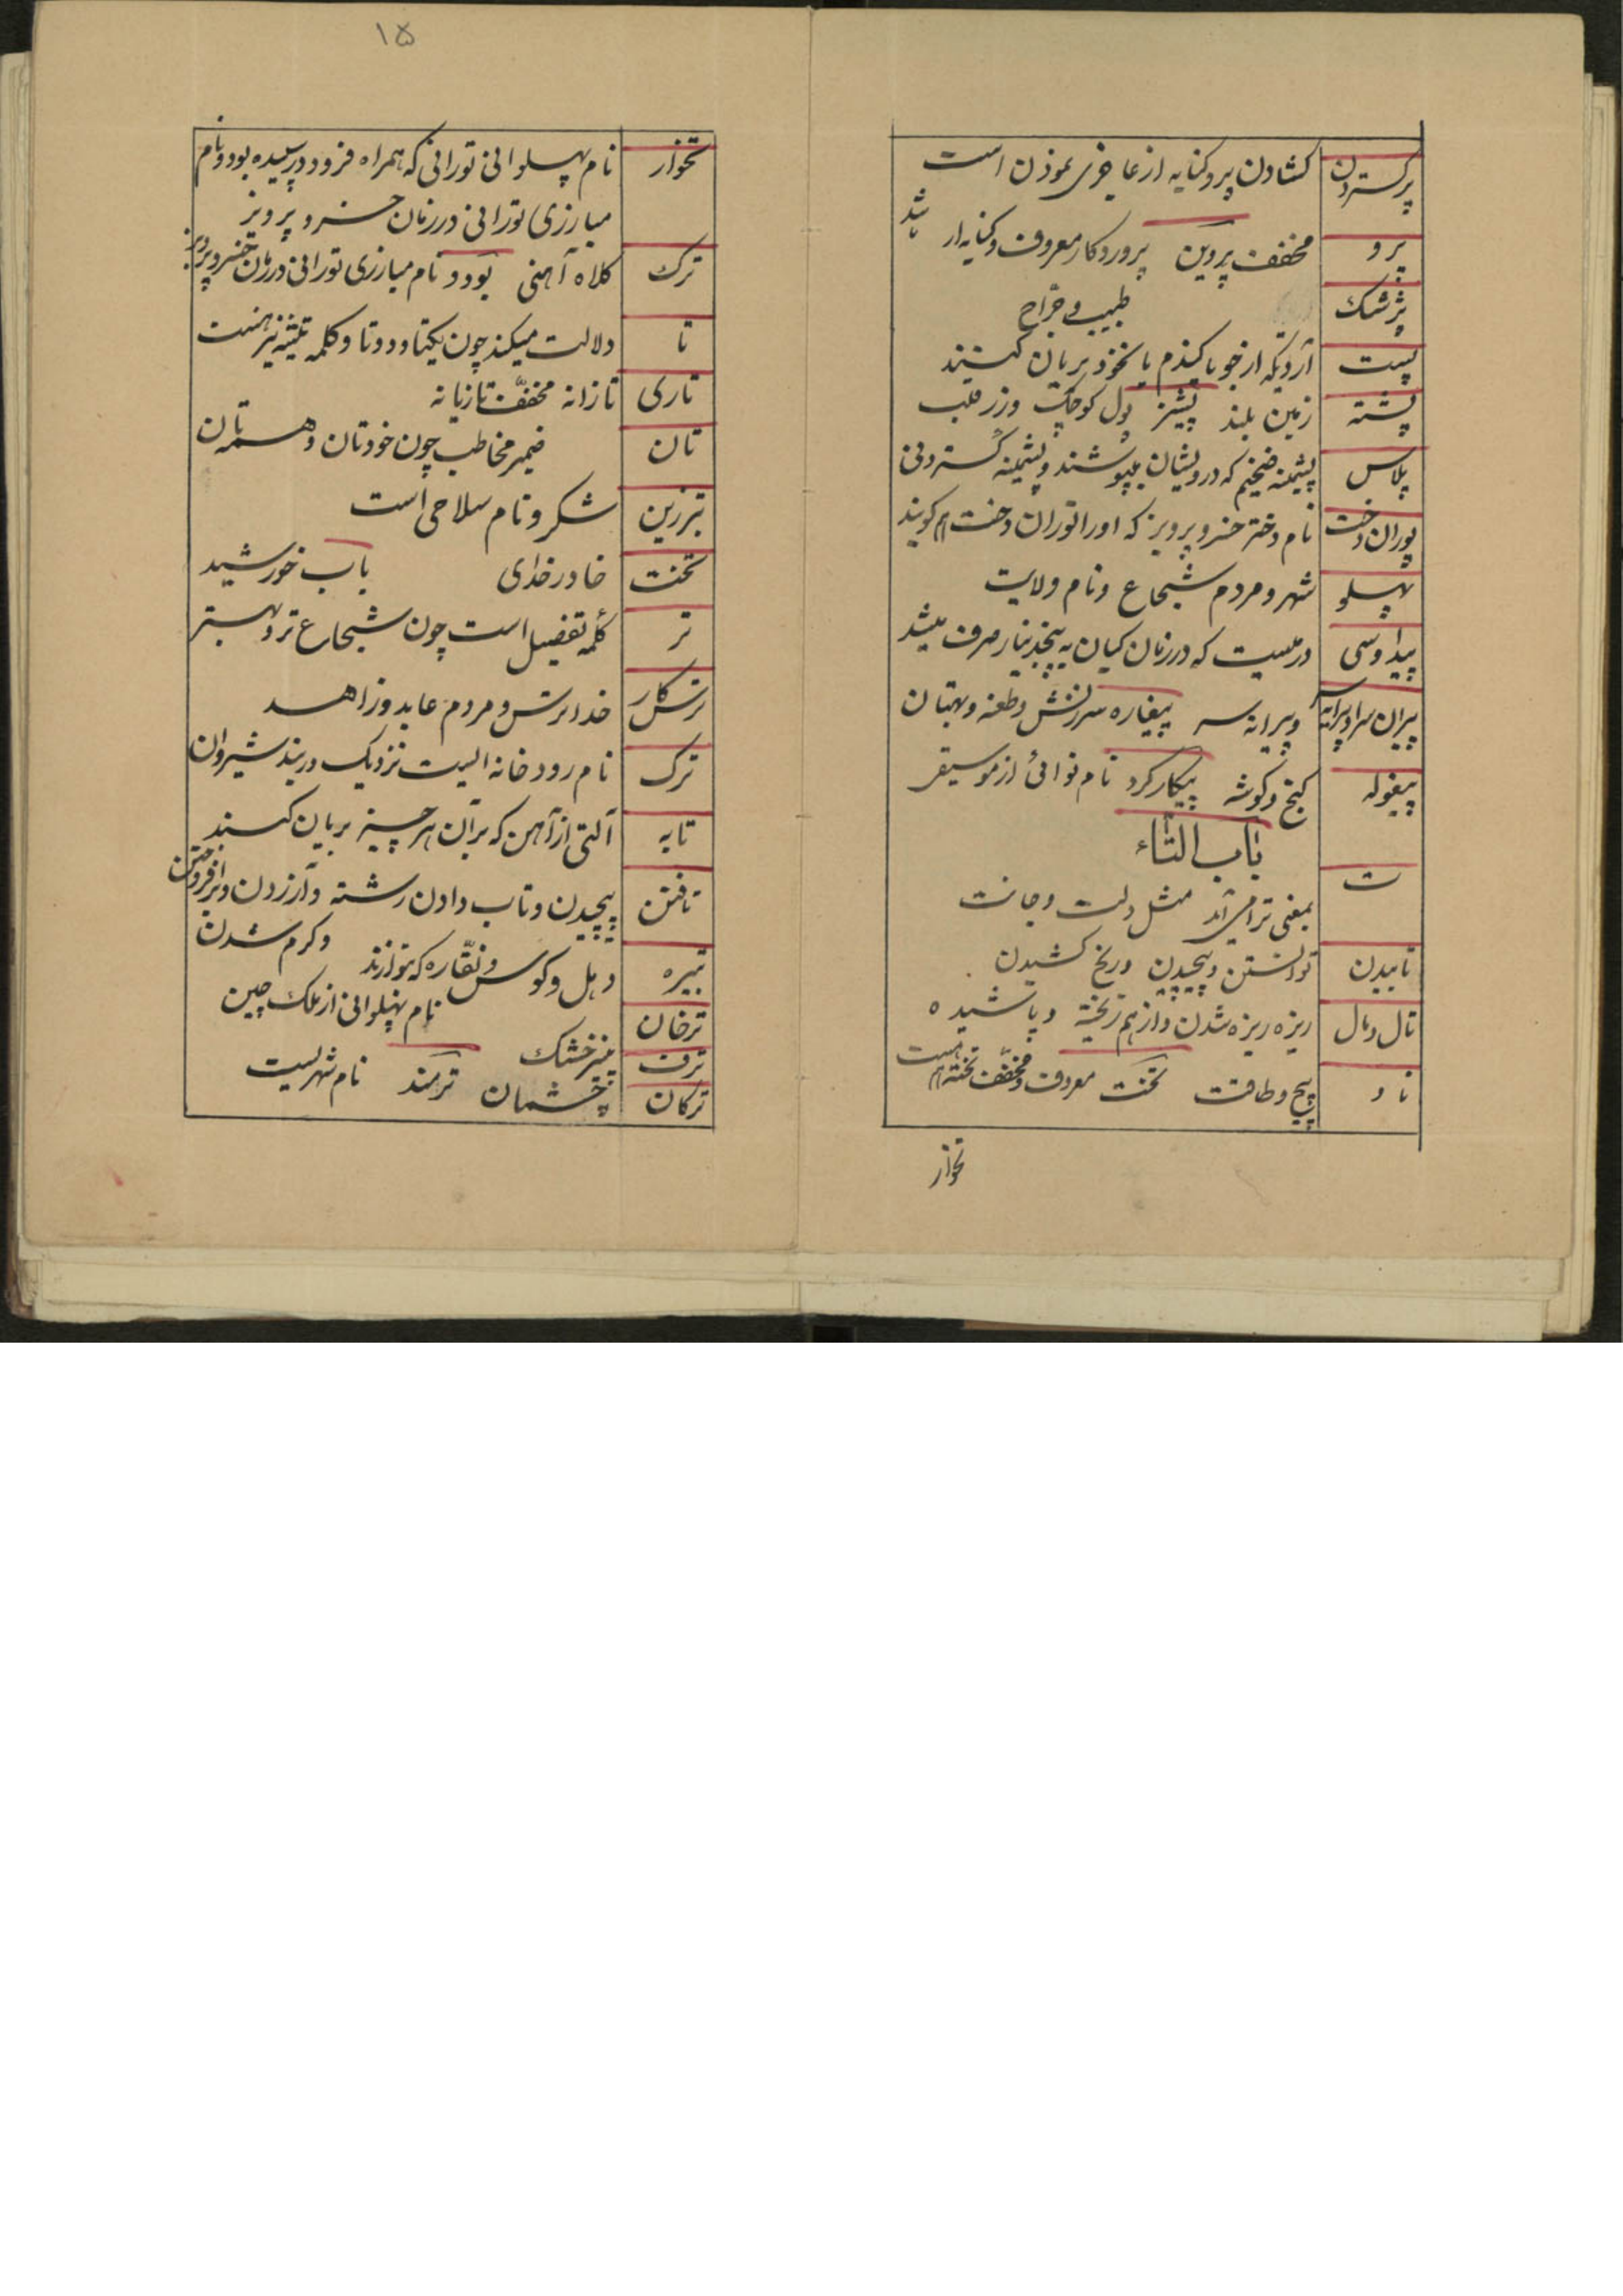 پرگستردن کشادن پر و کنایه از عاجزی نمودن است
پرو مخفف پروین پروردکار معروف و کنایه از باشد
پزشک طبیب و جراح
پست آردیکه از جو یا کندم یا نخود بریان کنند
پشته زمین بلند پشیز پول کوچک و زر قلب
پلاس پشمینه ضخیم که درویشان میپوشند و پشمینه گستردنی
پوران دخت نام دختر خسرو پرویز که او را توران دخت هم کویند
پهلو شهر و مردم شجاع و نام ولایت
پیداوسی درمیست که در زمان کیان به پنجدینار صرف میشد
پیران سر و پیرانه سر پیغاره سرزنش و طعنه و بهتان
پیغوله کنج و کوشه پیکار کرد نام نوائی از موسیقی
باب التاء
ت بمعنی ترا می آید مثل دلت و جانت
تابیدن توانستن و پیچیدن و رنج کشیدن
تال و مال ریزه ریزه شدن و از هم ریخته و پاشیده
تاو پیچ و طاقت تخت معروف و مخفف تخته هم هست
تخوار
۱۵
تخوار نام پهلوانی تورانی که همراه فرود بود و نام
مبارزی تورانی در زمان خسرو پرویز
ترک کلاه آهنی بود و نام مبارزی تورانی در زمان خسرو پرویز
تا دلالت میکند چون یکتا و دوتا و کلمه تثنیه نیز هست
تاری تازانه مخفف تازیانه
تان ضمیر مخاطب چون خودتان و همه تان
تبرزین شکر و نام سلاحی است
تخت خاور خدای باب خورشید
تر کلمه تفضیل است چون شجاع تر و بهتر
ترسکار خدا ترس و مردم عابد و زاهد
ترک نام رودخانه ایست نزدیک دربند شیروان
تابه آلتی از آهن که بر آن هر چیز بریان کنند
تافتن پیچیدن و تاب دادن رشته و آزردن و برافروختن
و کرم شدن
تبیره دهل و کوس و نقاره که نوازند
ترخان نام پهلوانی از ملک چین
ترف پنیر خشک
ترکان چشمان ترمند نام شهریست